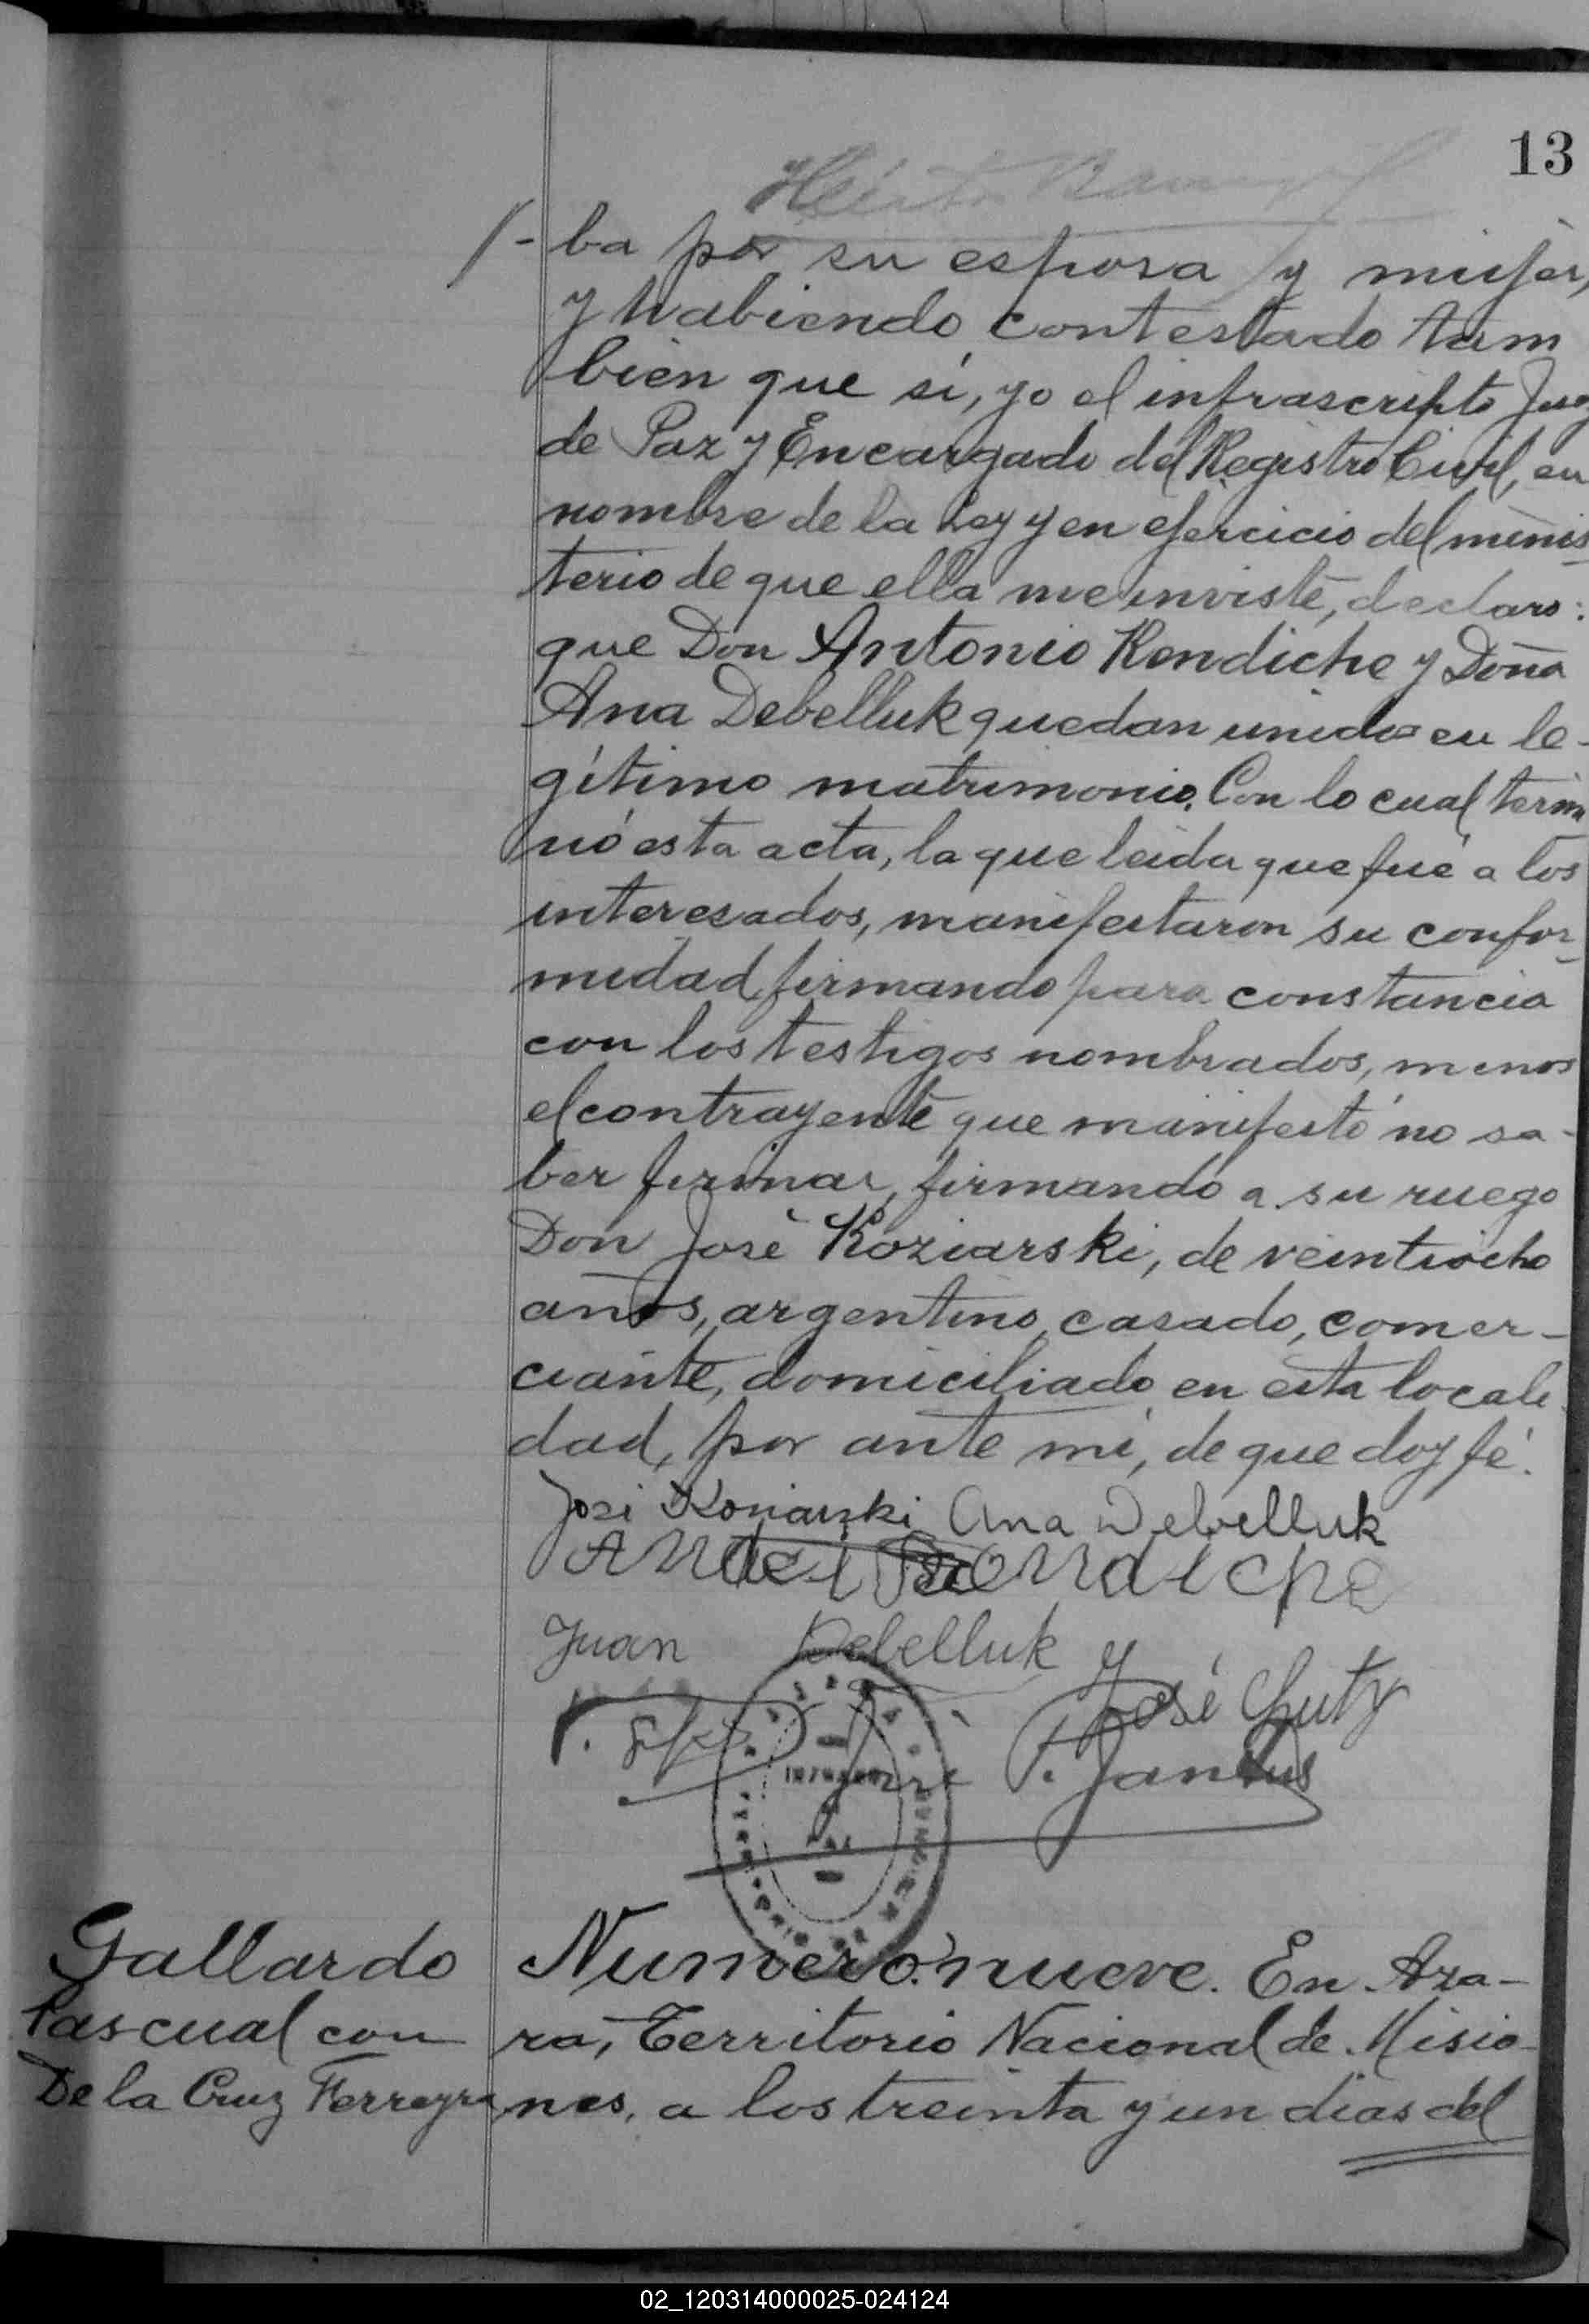 13
/-ba por su esposa y mujer,
y habiendo contestado tam
bien que sí, yo el infrascripto Juez
de Paz y Encargado del Registro Civil, en
nombre de la Ley y en ejercicio del minis
terio de que ella me inviste, declaro:
que Don Antonio Rendiche y Doña
Ana Debelluk quedan unidos en le-
gítimo matrimonio. Con lo cual termi
nó esta acta, la que leida que fué a los
interesados, manifestaron su confor-
midad, firmando para constancia
con los testigos nombrados, menos
el contrayente que manifestó no sa-
ber firmar, firmando a su ruego
Don José Koziarski, de veintiocho
años, argentino, casado, comer-
ciante, domiciliado en esta locali
dad, por ante mi, de que doy fé.
José Koziarski Ana Debelluk
Juan Debelluk
José
Gallardo
Pascual con
De la Cruz Ferreyra
Numero nueve. En Aza-
ra, Territorio Nacional de Misio-
nes, a los treinta y un dias del
02_120314000025-024124